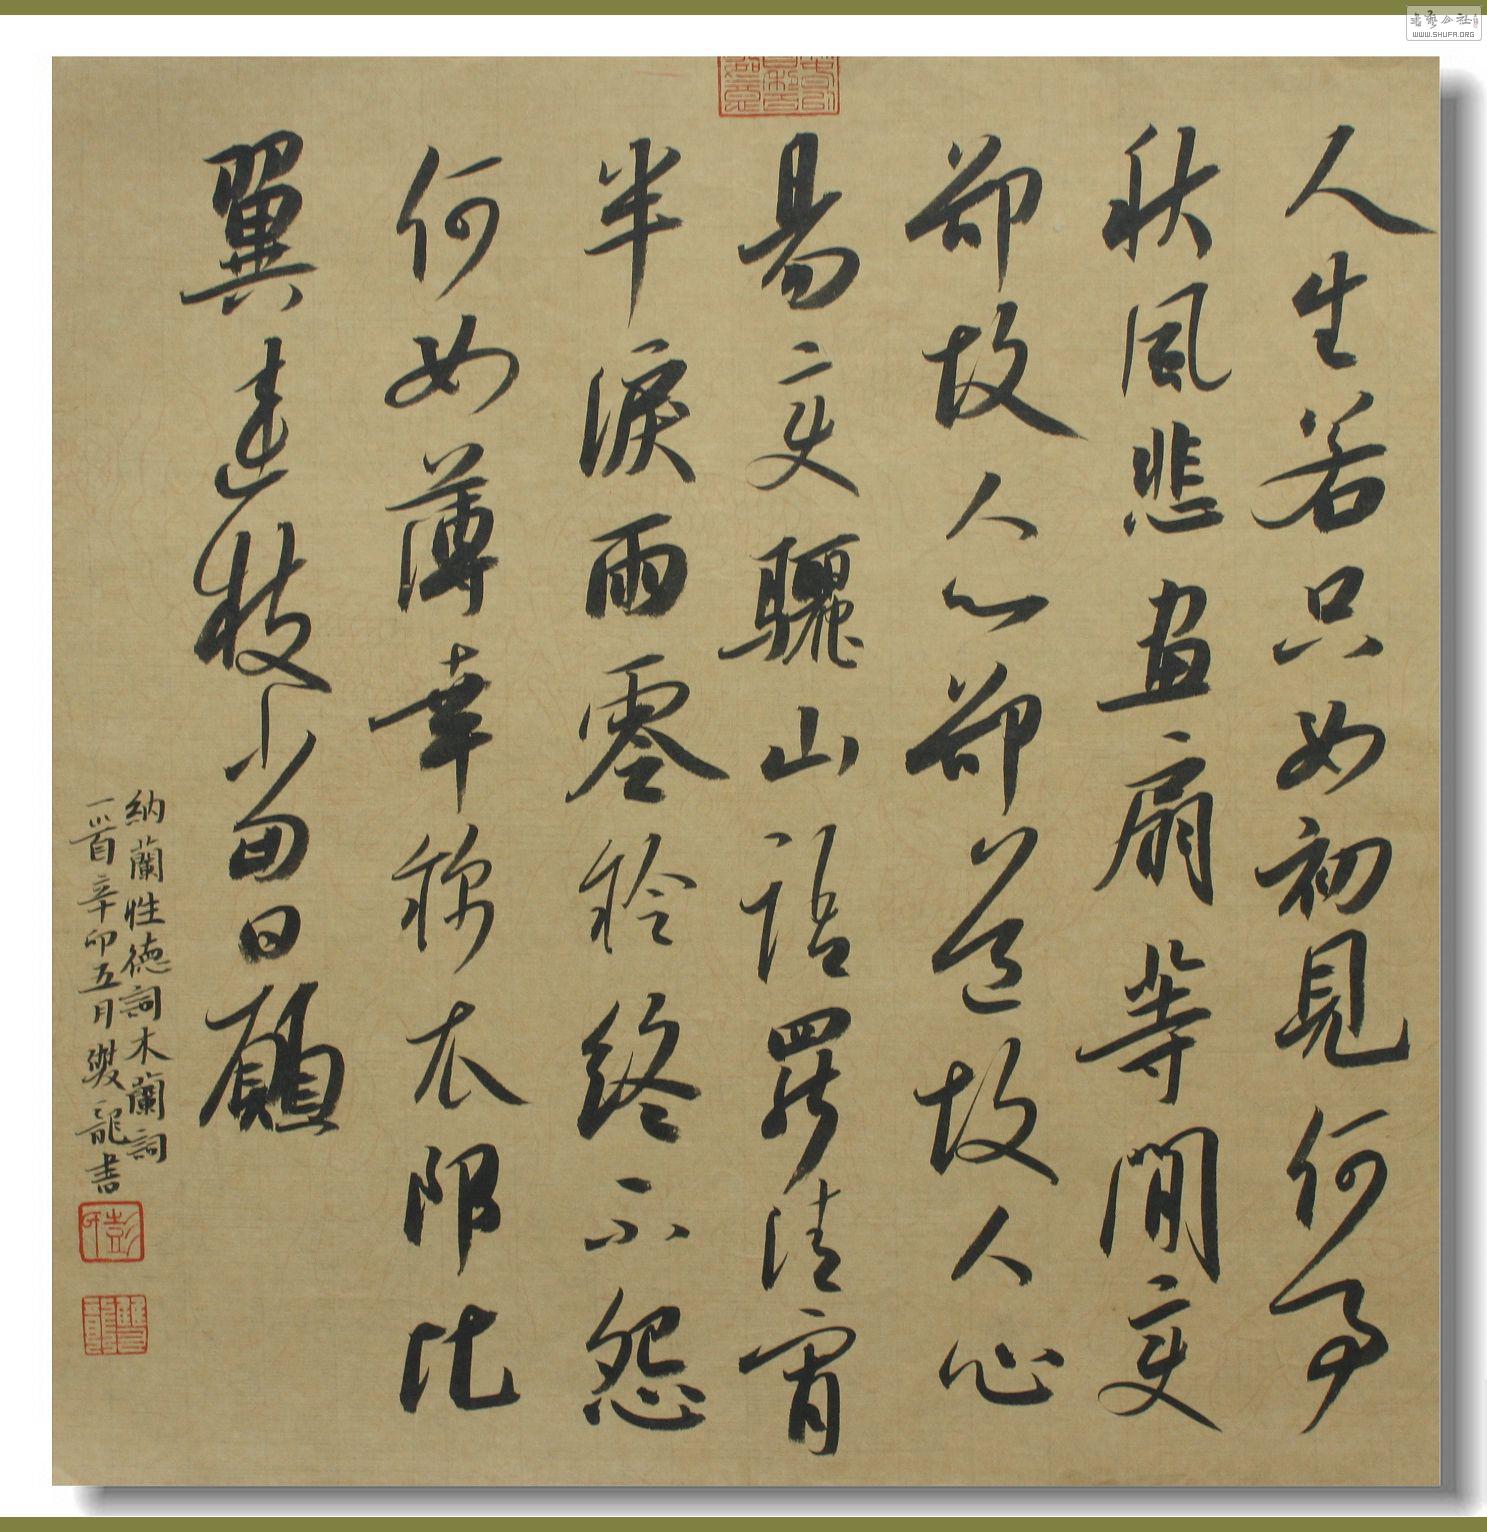 人生若只如初見何事
秋風悲畫扇等閒變
卻故人心卻道故人心
易變驪山語罷清宵
半淚雨零鈴終不怨
何如薄幸錦衣郎比
翼連枝當日願
納蘭性德詞木蘭詞
一首辛卯五月雙龍書
书藝公社
WWW.SHUFA.ORG